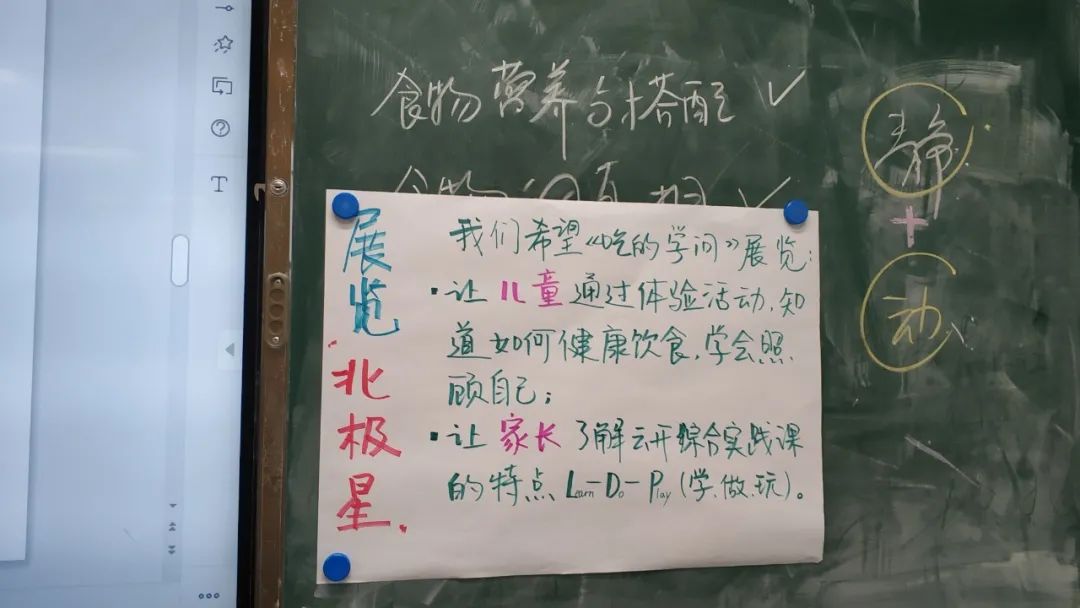 食物营养与搭配 ✓
展览北极星
我们希望《吃的学问》展览:
·让儿童通过体验活动,知
道如何健康饮食,学会照
顾自己;
·让家长了解云开综合实践课
的特点 Learn-Do-Play(学.做.玩)。
静
+
动
T